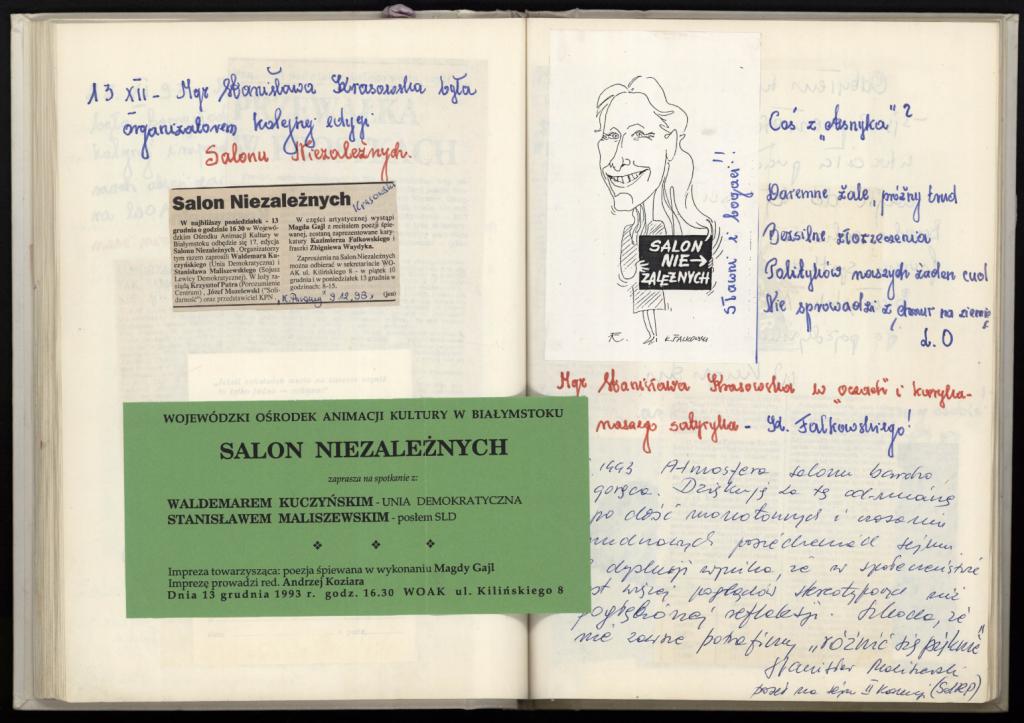 13 XII - Mgr Stanisława Krasowska była
organizatorem kolejnej edycji
Salonu Niezależnych.
Salon Niezależnych
Krasowska
W najbliższy poniedziałek - 13
grudnia o godzinie 16 30 w Wojewó-
dzkim Ośrodku Animacji Kultury w
Białymstoku odbędzie się 17. edycja
Salonu Niezależnych. Organizatorzy
tym razem zaprosili Waldemara Ku-
czyńskiego (Unia Demokratyczna) i
Stanisława Maliszewskiego (Sojusz
Lewicy Demokratycznej). W loży za-
siądą Krzysztof Putra (Porozumienie
Centrum), Józef Mozolewski ("Soli-
darność") oraz przedstawiciel KPN.
W części artystycznej wystąpi
Magda Gajl z recitalem poezji śpie-
wanej, zostaną zaprezentowane kary-
katury Kazimierza Falkowskiego i
fraszki Zbigniewa Waydyka.
Zaproszenia na Salon Niezależnych
można odbierać w sekretariacie WO-
AK ul. Kilińskiego 8 - w piątek 10
grudnia i w poniedziałek 13 grudnia w
godzinach: 8-15.
(jen)
"K. Poranny" 9.12.93r.
WOJEWÓDZKI OŚRODEK ANIMACJI KULTURY W BIAŁYMSTOKU
SALON NIEZALEŻNYCH
zaprasza na spotkanie z:
WALDEMAREM KUCZYŃSKIM - UNIA DEMOKRATYCZNA
STANISŁAWEM MALISZEWSKIM - posłem SLD
Impreza towarzysząca: poezja śpiewana w wykonaniu Magdy Gajl
Imprezę prowadzi red. Andrzej Koziara
Dnia 13 grudnia 1993 r. godz. 16.30 WOAK ul. Kilińskiego 8
SALON
NIE→
ZALEŻNYCH
K. FALKOWSKI
Sławni i bogaci..!!
Coś z "Asnyka"?
Daremne żale, próżny trud
Bezsilne złorzeczenia
Polityków naszych żaden cud
Nie sprowadzi z chmur na ziemię
Mgr Stanisława Krasowska w "oczach" i karyka-
naszego satyryka - Falkowskiego!
1993 Atmosfera salonu bardzo
gorąca. Dziękuję za tę odmianę
po dość monotonnych i czasami
nudnawych posiedzeniach sejmu.
dyskusji wynika, że w społeczeństwie
jest więcej poglądów stereotypowe niż
pogłębionej refleksji. Szkoda, że
nie zawsze potrafimy "różnić się pięknie"
Stanisław Maliszewski
poseł na sejm II kadencji (SdRP)